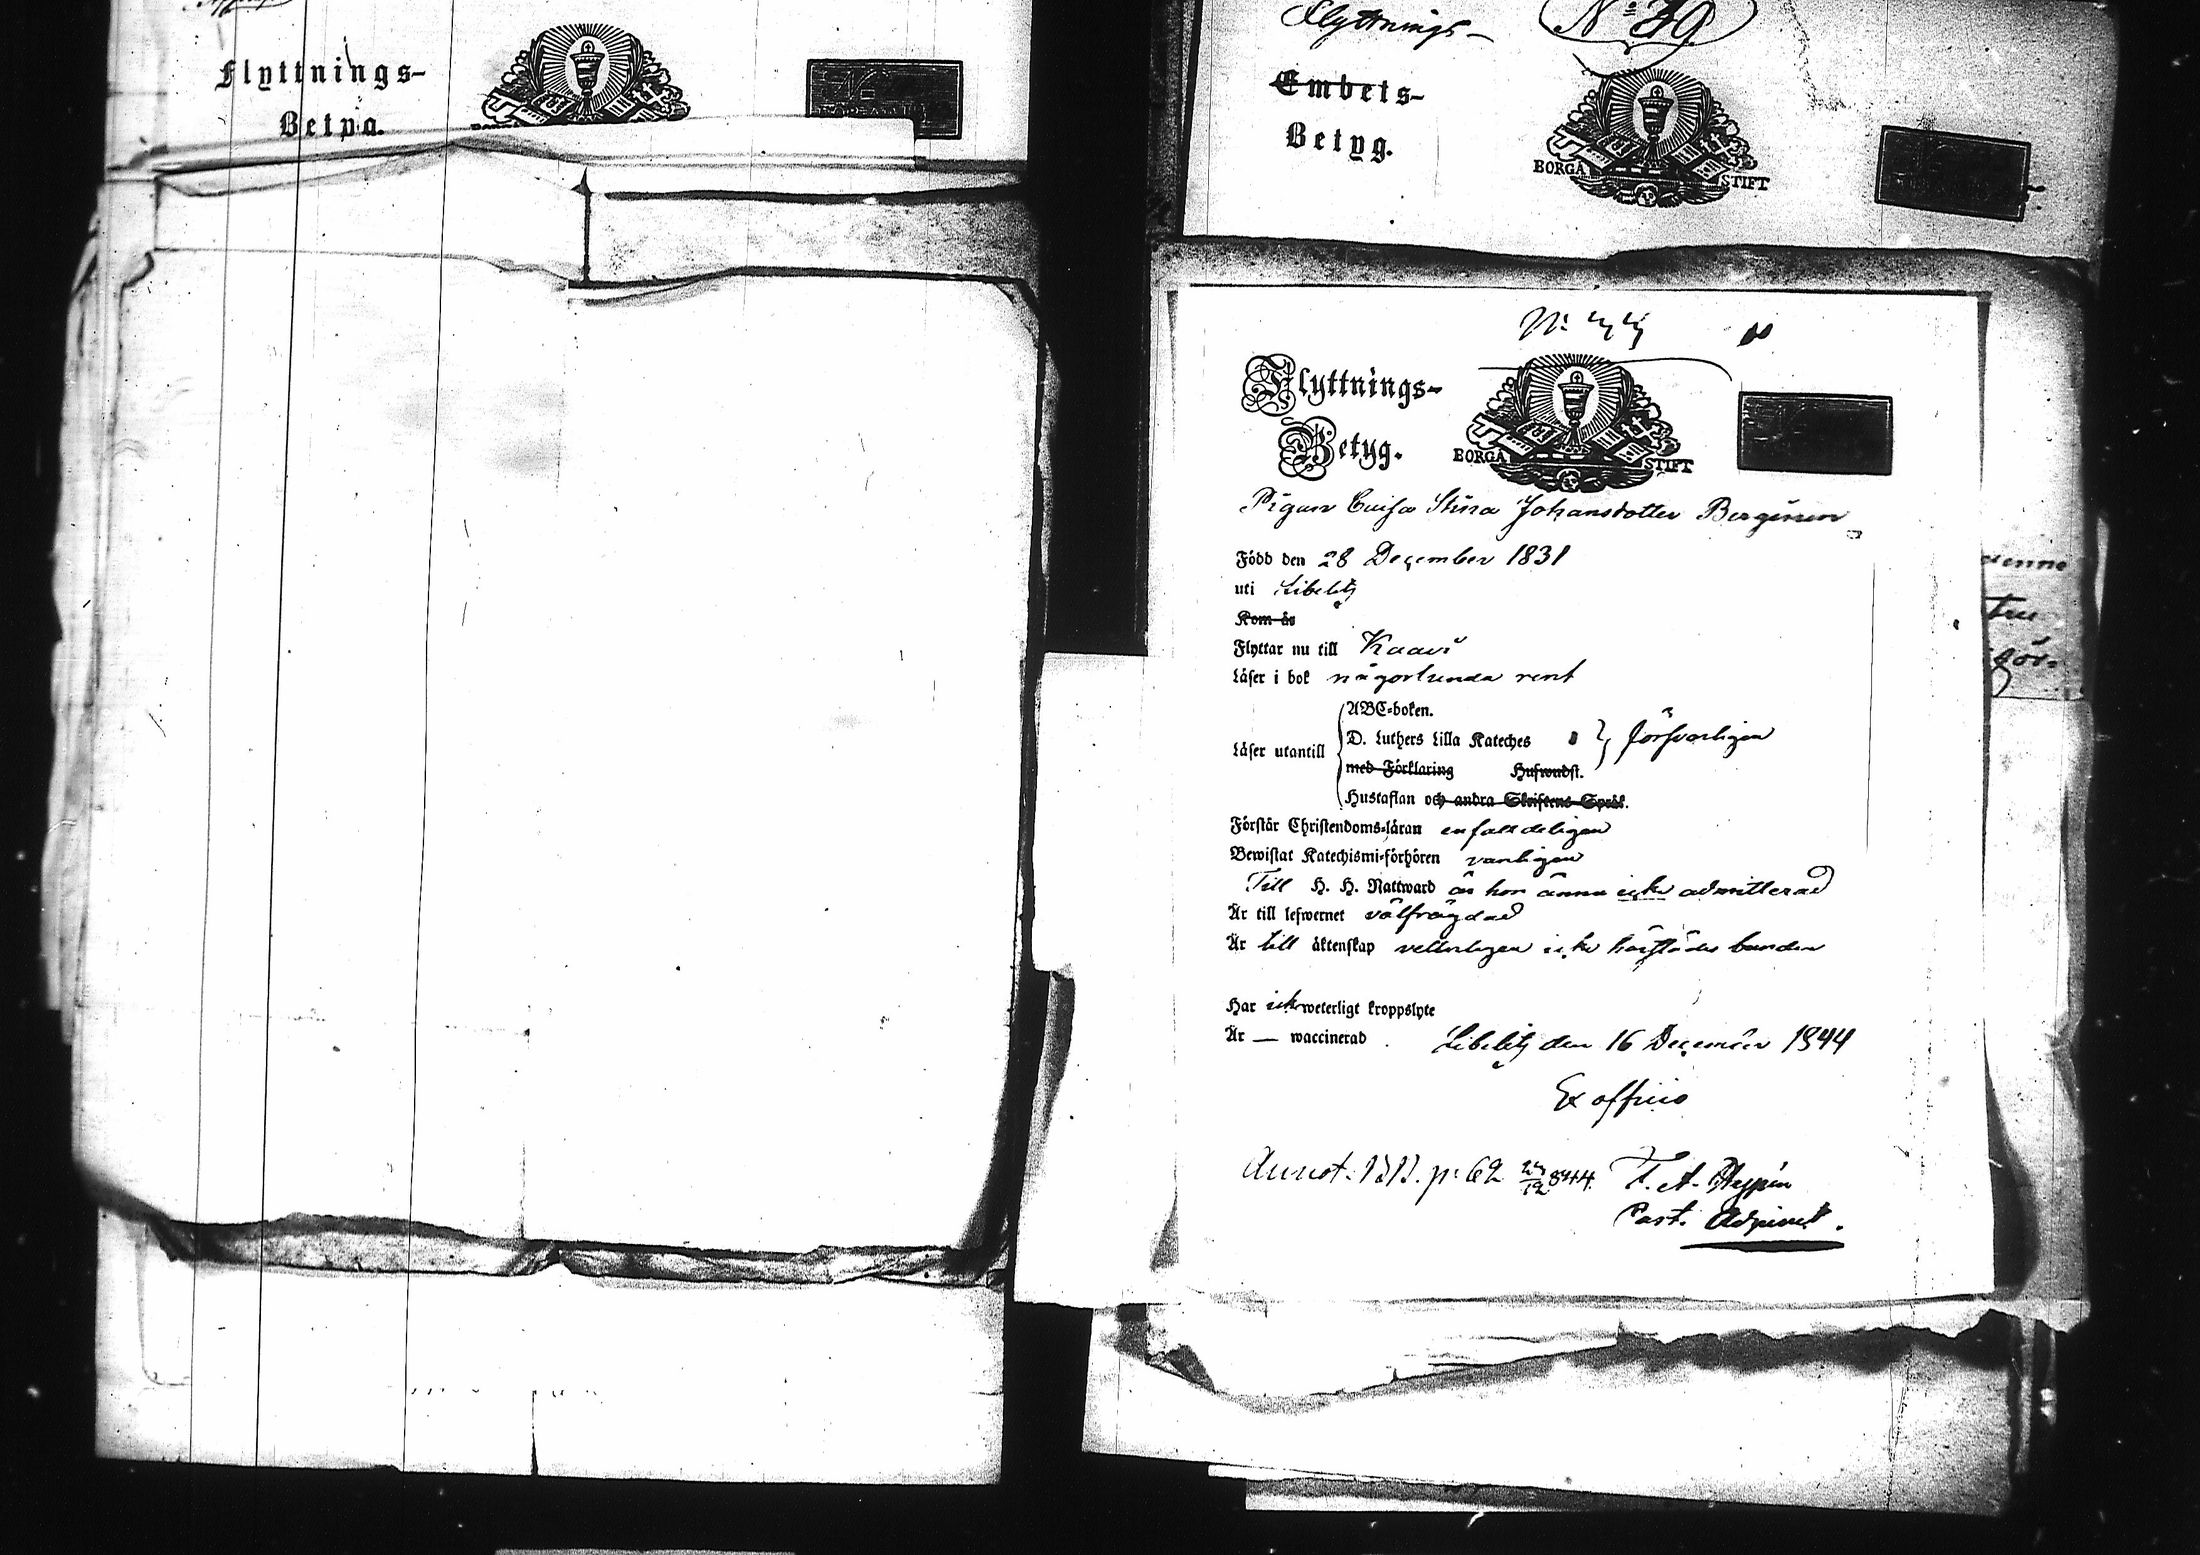 Flyttnings-
Betyg.
Flyttnings-
No 39
Embets-
Betyg.
BORGÅ STIFT
No 44
Flyttnings-
Betyg.
BORGÅ STIFT
Pigan Caisa Stina Johansdotter Berginen
Född den 28 December 1831
uti Libelitz
Kom år
Flyttar nu till Kaavi
Läser i bok någorlunda rent
ABC-boken.
Läser utantill D. Luthers Lilla Kateches försvarligen
med Förklaring Hufwudst.
Hustaflan och andra Skriftens Språk.
Förstår Christendoms-läran enfaldeligen
Bewistat Katechismi-förhören vanligen
Till H. H. Nattward är hon ännu icke admitterad
Är till lefwernet välfrägdad
Är till äktenskap vetterligen icke härstädes bunden
Har icke weterligt kroppslyte
Är — waccinerad
Libelitz den 16 December 1844
Ex officio
Annot. p. 62 844. F. A.
Past. Adjunct.